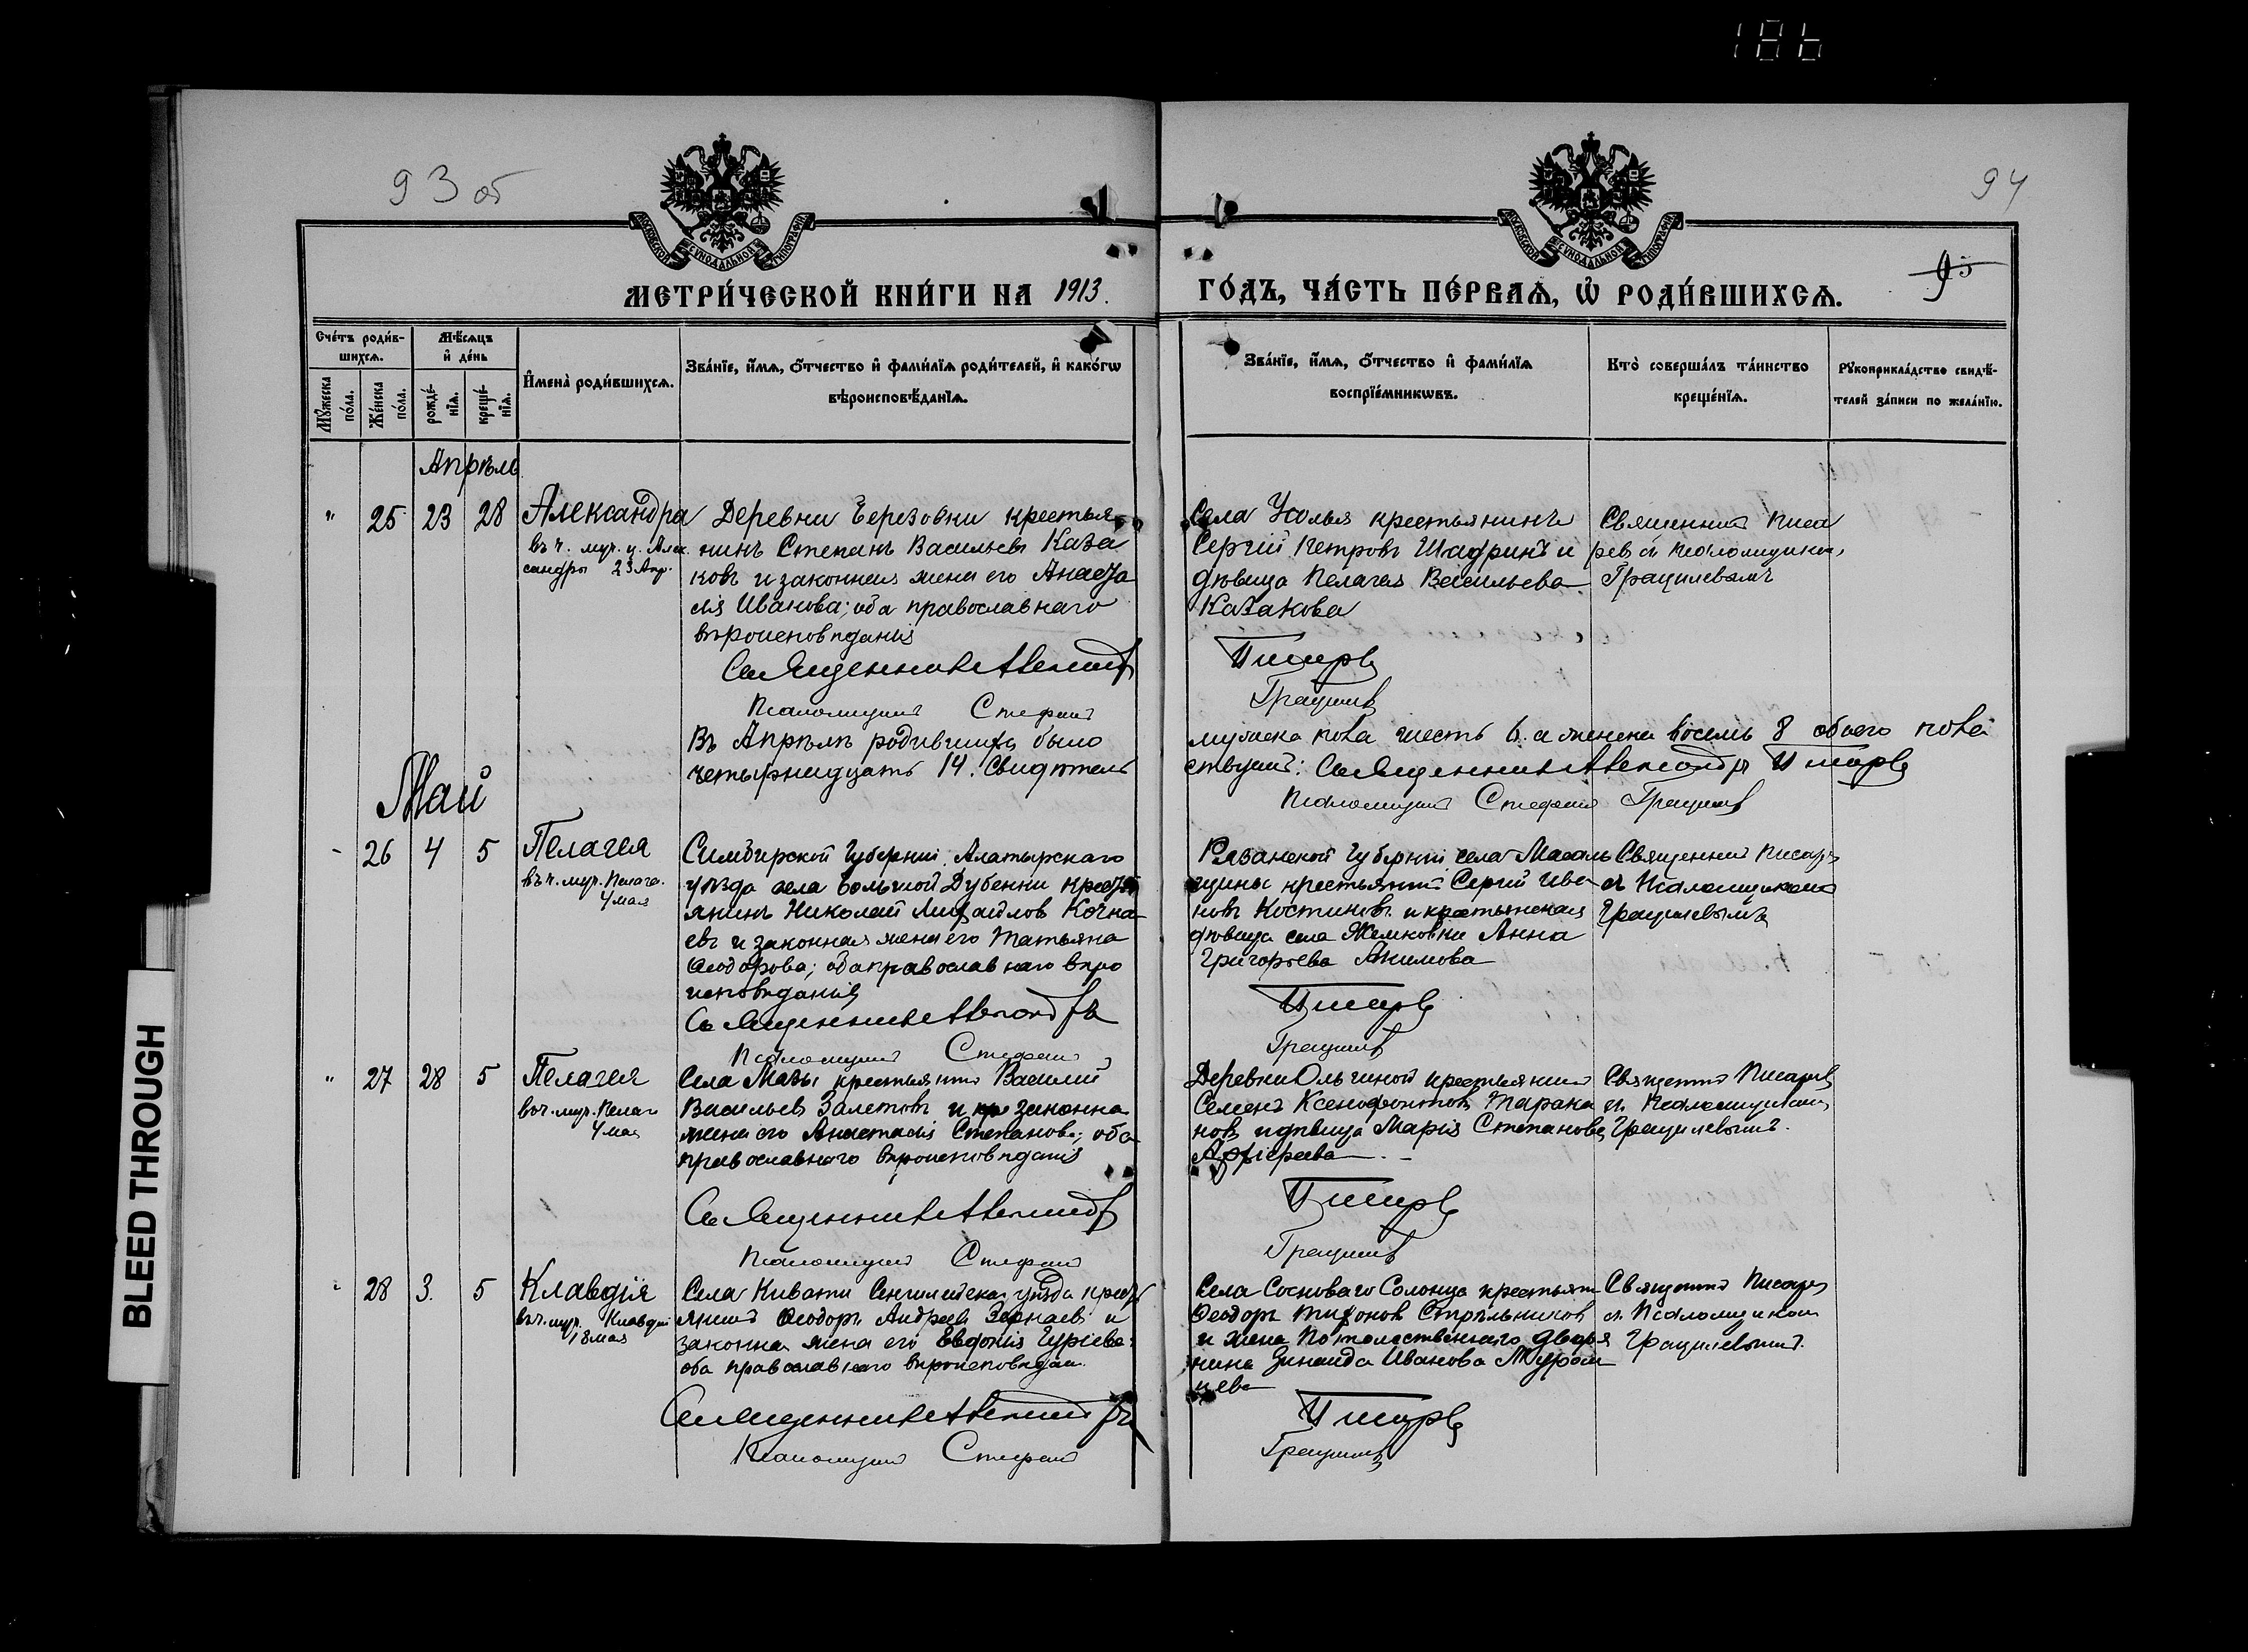 186
93 об
94
95
МОСКОВСКОЙ СѴНОДАЛЬНОЙ ТИПОГРАФІИ
МОСКОВСКОЙ СѴНОДАЛЬНОЙ ТИПОГРАФІИ
МЕТРИ́ЧЕСКОЙ КНИ́ГИ НА 1913.
ГО́ДЪ, ЧА́СТЬ ПЕ́РВАѦ, Ѡ҆ РОДИ́ВШИХСѦ.
Сче́тъ роди́в-
шихсѧ.
Мѣ́сѧцъ
и҆ де́нь
Мꙋ́жеска
по́ла.
Же́нска
по́ла.
рожде́-
нїѧ.
креще́-
нїѧ.
И҆мена̀ роди́вшихсѧ.
Зва́нїе, и҆́мѧ, ѻ҆́тчество и҆ фами́лїѧ роди́телей, и҆ како́гѡ
вѣроисповѣ́данїѧ.
Зва́нїе, и҆́мѧ, ѻ҆́тчество и҆ фами́лїѧ
воспрїе́мникѡвъ.
Кто̀ соверша́лъ та́инство
креще́нїѧ.
Рꙋкоприкла́дство свидѣ́-
телей за́писи по жела́нїю.
Апрѣль
" 25 23 28 Александра
въ ч. муч. ц. Алек
сандры 23 Апр.
Деревни Березовки крестья-
нинъ Степанъ Васильевъ Каза
ковъ и законная жена его Анаста
сія Иванова; оба православнаго
вѣроисповѣданія
Священникъ Александръ
Псаломщикъ Стефанъ
Села Усолья крестьянинъ
Сергій Петровъ Шадринъ и
дѣвица Пелагея Васильева
Казакова
Писаревъ
Грацилевъ
Священникъ Писа
ревъ съ псаломщикомъ
Грацилевымъ
Въ Апрѣлѣ родившихся было
четырнадцать 14. Свидѣтель
мужеска пола шесть 6. а женска восемь 8 обоего пола
ствуютъ: Священникъ Александръ Писаревъ
Псаломщикъ Стефанъ Грацилевъ
Май
- 26 4 5 Пелагея
въ ч. муч. Пелаге.
4 мая
Симбирской Губерніи Алатырскаго
уѣзда села Большой Дубенки крест
янинъ Николай Михаиловъ Кочна
евъ и законная жена его Татьяна
Ѳеодорова; оба православнаго вѣро
исповѣданія
Священникъ Александръ
Псаломщикъ Стефанъ
Рязанской Губерніи села Масаль
щины крестьянинъ Сергій Ива
новъ Костиковъ и крестьянская
дѣвица села Жемковки Анна
Григорьева Акимова
Писаревъ
Грацилевъ
Священникъ Писаревъ
съ Псаломщикомъ
Грацилевымъ
" 27 28 5 Пелагея
въ ч. муч. Пелаг
4 мая
Села Мазы крестьянинъ Василий
Васильевъ Залетовъ и законна
жена его Анастасія Степанова; оба
православнаго вѣроисповѣданія
Священникъ Александръ
Псаломщикъ Стефанъ
Деревни Ольгиной крестьянинъ
Семенъ Ксенофонтовъ Тарака
новъ и дѣвица Марія Степанова
Писаревъ
Грацилевъ
Священникъ Писаревъ
съ Псаломщикомъ
Грацилевымъ.
28 3. 5 Клавдія
въ ч. муч. Клавдіи
18 мая
Села Кивати Сенгилейскаго уѣзда крест
янинъ Ѳеодоръ Андреевъ и
законна жена его Евдокія Гурієва;
оба православнаго вѣроисповѣдан.
Священникъ Александръ
Псаломщикъ Стефанъ
Села Сосноваго Солонца крестьян
Ѳеодоръ Тихоновъ Стрѣльниковъ
и жена Потомственнаго дворя
нина Зинаида Ивановна Муром
цева
Писаревъ
Грацилевъ
Священникъ Писарев
съ Псаломщиком
Грацилевымъ.
BLEED THROUGH